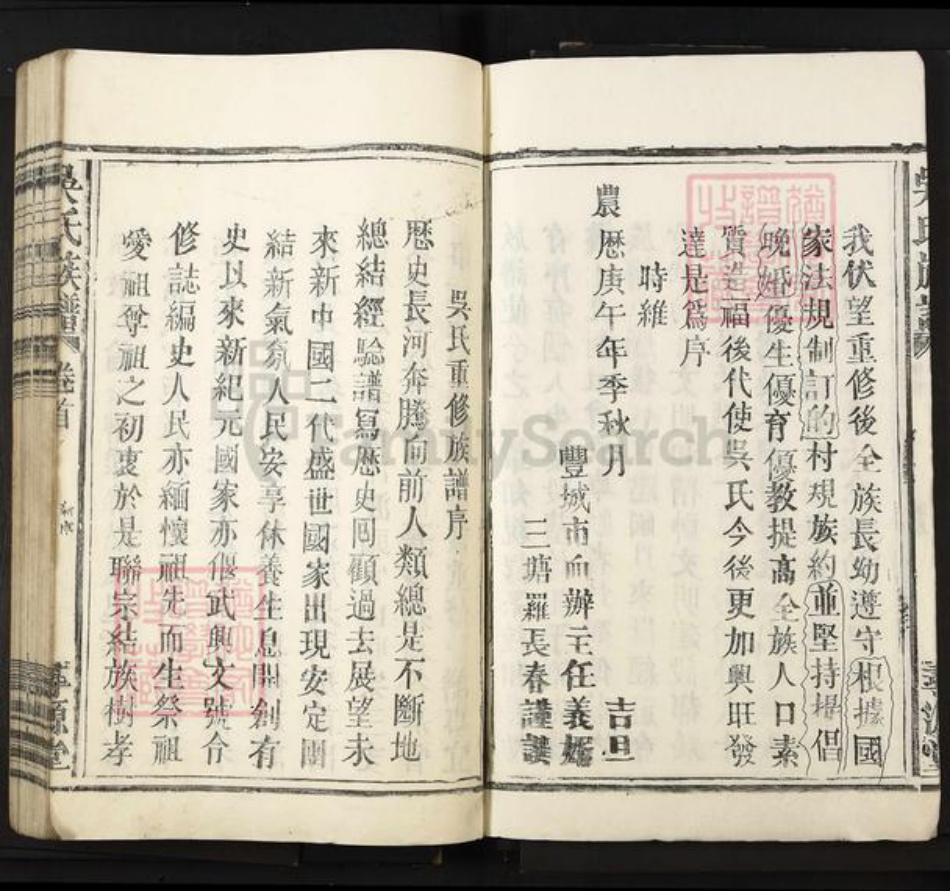 我伏望重修後全族長幼遵守根據國
家法規制訂的村規族約並堅持提倡
晚婚優生優育優教提高全族人口素
質造福後代使吳氏今後更加興旺發
達是爲序
時維
農歷庚午年季秋月 吉旦
豐城市血辦主任義婿
三塘羅長春謹譔
吳氏重修族譜序
歷史長河奔騰向前人類總是不斷地
總結經驗譜寫歷史回顧過去展望未
來新中國二代盛世國家出現安定團
結新氣氛人民安享休養生息開創有
史以來新紀元國家亦偃武興文號令
修誌編史人民亦緬懷祖先而生祭祖
愛祖尊祖之初衷於是聯宗結族樹孝
吳氏族譜 卷首
吳氏族譜
FamilySearch